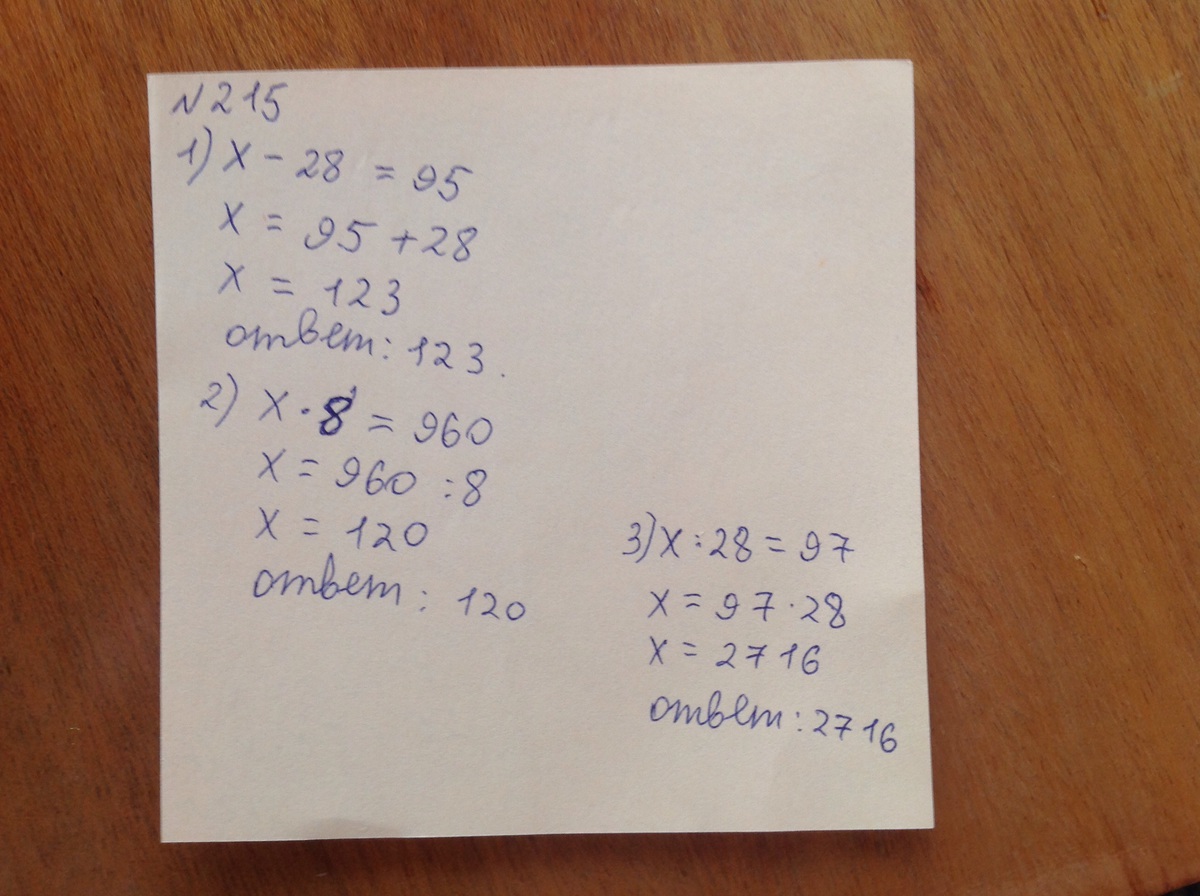 N215
1) x - 28 = 95
x = 95 + 28
x = 123
ответ: 123.
2) x · 8 = 960
x = 960 : 8
x = 120
ответ: 120
3) x : 28 = 97
x = 97 · 28
x = 2716
ответ: 2716